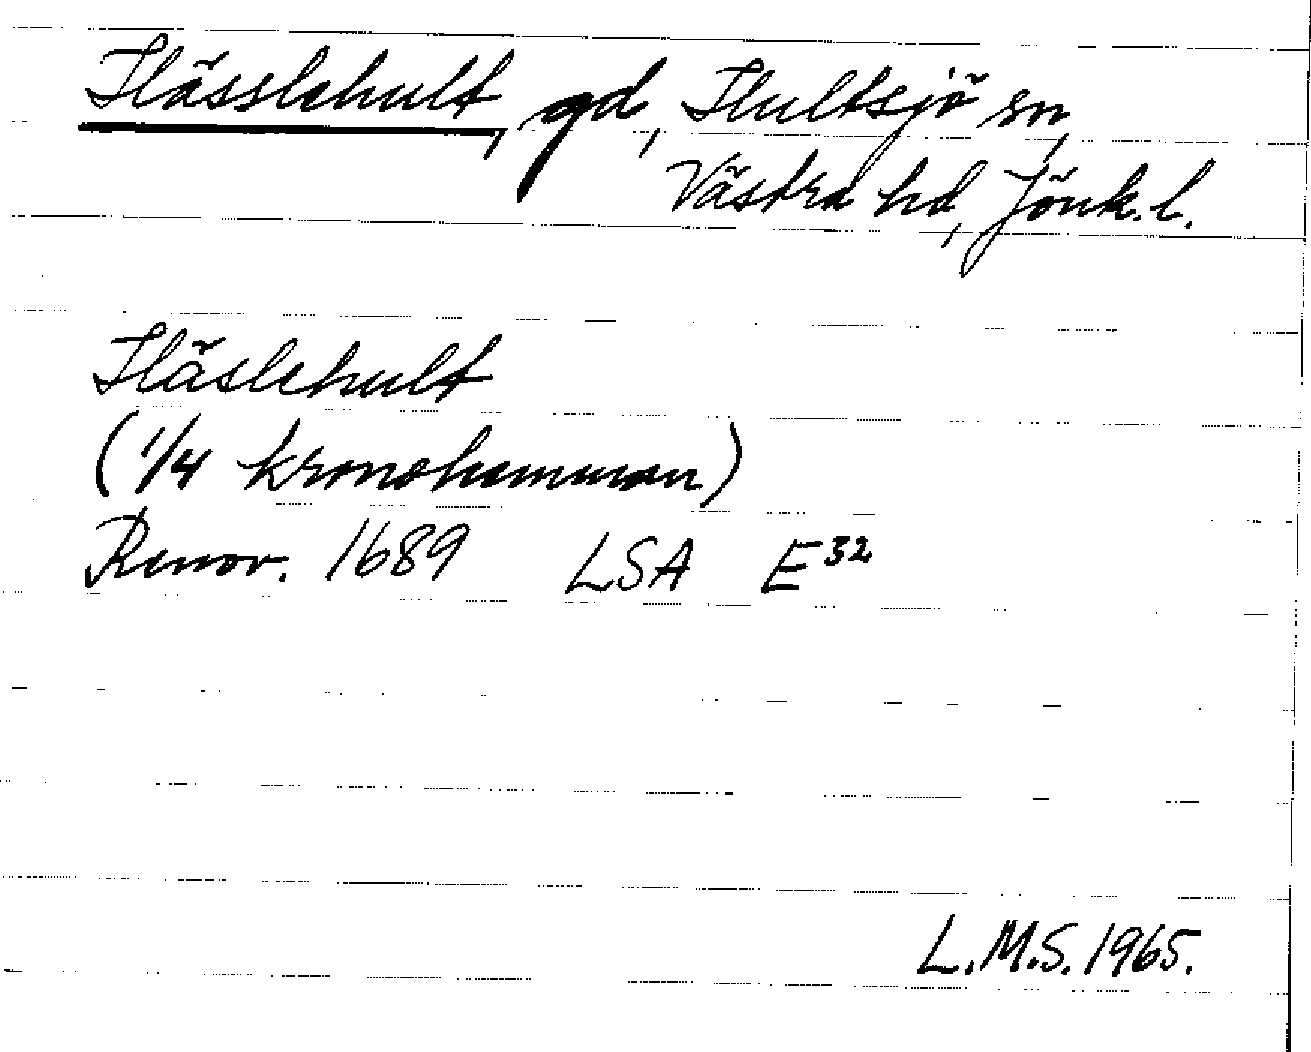 Hässlehult, gd, Hultsjö sn,
Västra hd, Jönk. l.
Häslehult
(1/4 kronohemman)
Renov. 1689 LSA E³²
L.M.S. 1965.